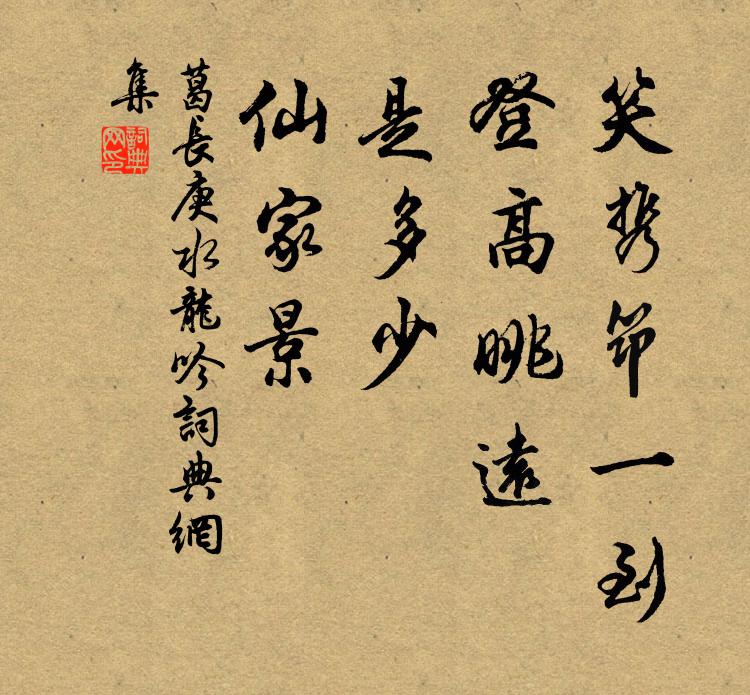 笑携筇一到
登高眺遠
是多少
仙家景
葛長庚水龍吟詞典網
集
詞典网印